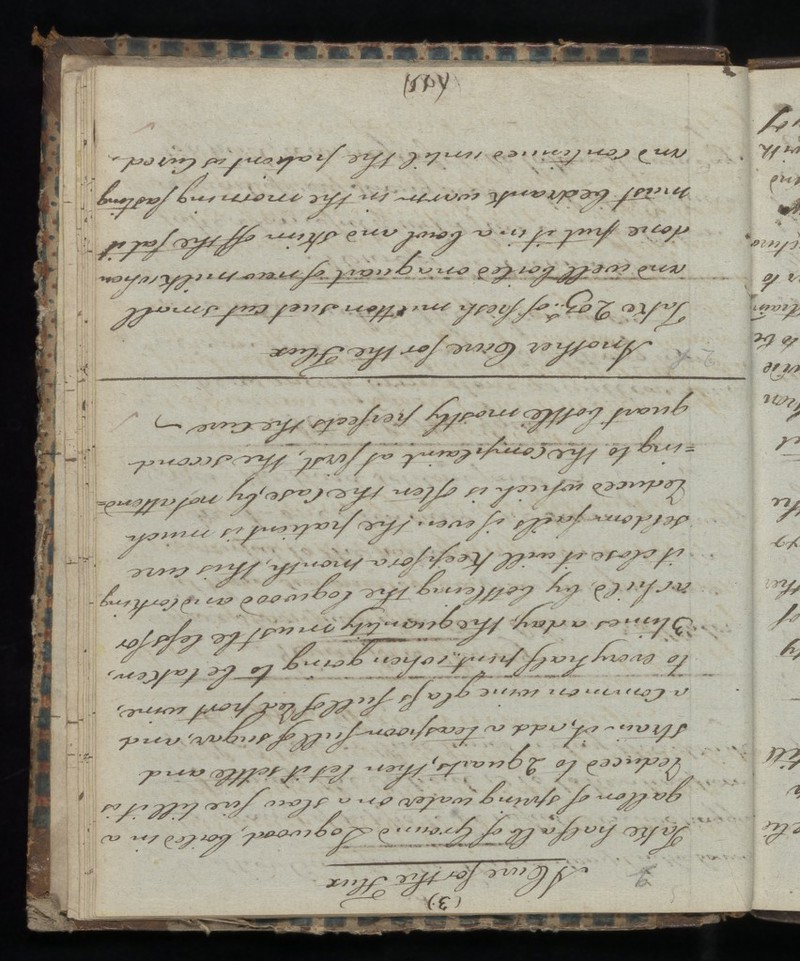 (3)
A Cure for the Flux
Take half a ℔ of Ground Logwood, boiled in a
gallon of spring water on a slow fire till it is
reduced to 2 quarts, then let it settle and
strain it, add a teaspoon full of sugar, and
a Common wine glass full of Red port wine,
to every half pint, when going to be taken,
3 times a day, the quantity must be less for
a child, by bottleing the logwood and Corking
it close it will keep for a month, this cure
seldom fails if even the patient is much
reduced which is often the Case, by not attend=
=ing to the Complaint at first, the second
quart bottle mostly perfects the cure
Another Cure for the Flux
Take 2 oz. of fresh mutton suet cut small
and well boiled on a quart of new milk when
done put it in a bowl and skim off the fat it
must be drank warm in the morning fasting
and continued until the patient is Cured.